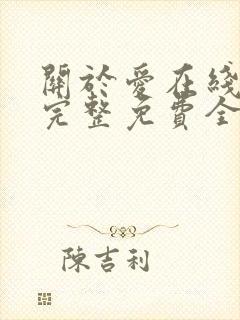 關於愛在綫
完整免費全
陳吉利